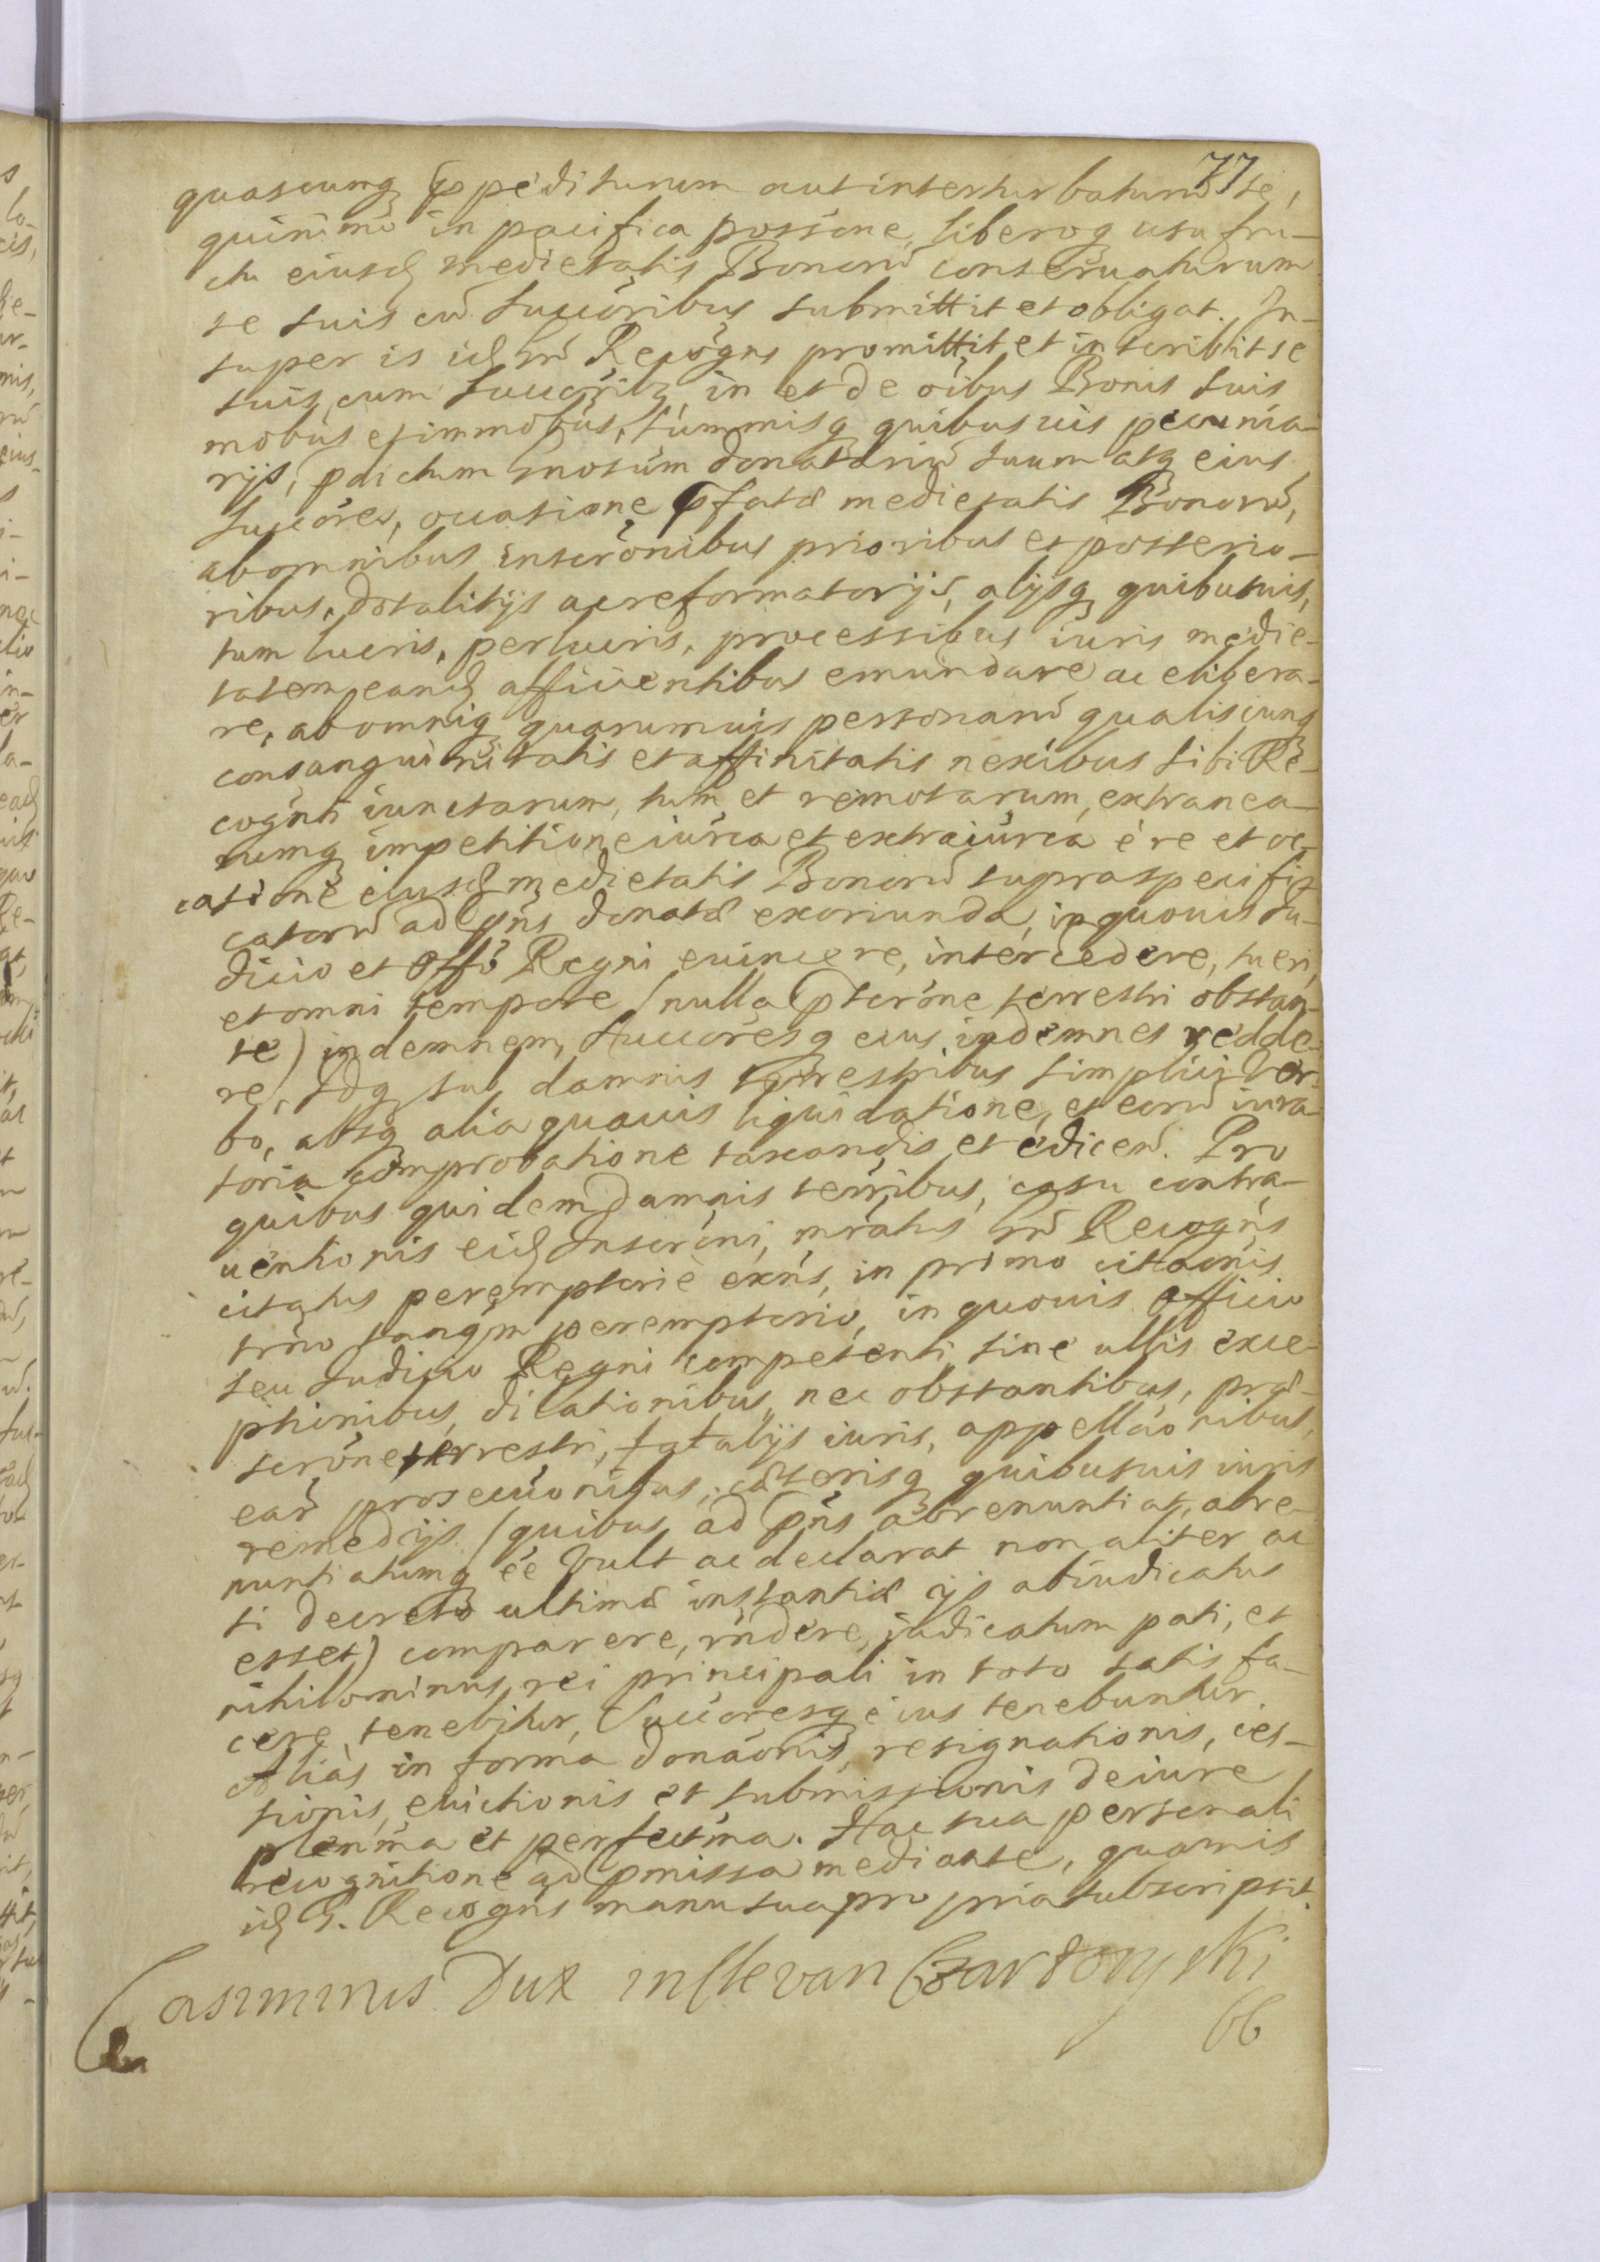 77
quascunq̨ p̄pediturum aut interturbaturū se,
quinimò in pacifica possōne, liberoq̨ usufru-
ctu eiusd̨ medietatis Bonorū conservaturum
se suis cū Succōribus submittit et obligat. In-
super is id̨ Recogns promittit et inscribit se
suis cum Succōribz in et de oībus Bonis suis
mobūs et immobūs, summisq̨ quibusvis pecunia-
rijs, pdictum donatariū suum atq̨ eius
Succōres, occasione p̄fatæ medietatis Bonorū,
ab omnibus inscrōnibus prioribus et posterio-
ribus, dotalitijs ac reformatorijs, alijsq̨ quibusvis,
tum lucris, perlucris, processibus iuris medie-
tatem eand̨ afficientibus emundare ac elibera-
re, ab omniq̨ quarumvis personarū qualiscunq̨
consanguinitatis et affinitatis nexibus sibi Re-
cognti iunctarum, tum et remotarum, extranea-
rumq̨ impetitione iurca et extraiurca è re et oc-
casione eiusd̨ medietatis Bonorū supraspecifi-
catorū ad p̄ns donatæ exoriunda, in quovis Iu-
dicio et Offō Regni evincere, intercedere, tueri,
et omni tempore (nulla p̄scrōne terrestri obstan-
te) indemnem, Succōresq̨ eius indemnes redde-
re, Idq̨ sub damnis terrestribus simplici ver-
bo, absq̨ alia quavis liquidatione, et eorū iura-
toria comprobatione taxandis et edicen. Pro
quibus quidem damnis terrribus, casu contra-
uentionis eid̨ Inscrōni, Recogns
citatus peremptoriè exns, in primo citaōnis
trno tanqm peremptorio, in quovis Officio
seu Iudicio Regni competenti sine ullis exce-
ptionibus, dilationibus, nec obstantibus, præ-
scrōne terrestri, fatalijs iuris, appellaōnibus,
earū prosecuōnibus, cæterisq̨ quibusvis iuris
remedijs (quibus ad p̄ns abrenuntiat, abre-
nuntiatumq̨ eē vult ac declarat non aliter ac
si decreto ultimæ instantiæ ijs abiudicatus
esset) comparere, rn̄dere, iudicatum pati, et
nihilominus rei principali in toto satis fa-
cere, tenebitur, Succōresq̨ eius tenebuntur.
Aliàs in forma donaōnis, resignationis, ces-
sionis, evictionis et submissionis de iure
plenma et perfectma. Hac sua personali
recognitione ad p̄missa mediante, quamis
id̨ G. Recogns manu sua propria subscripsit.
Casimirus Dux in Clevan Czartoryski